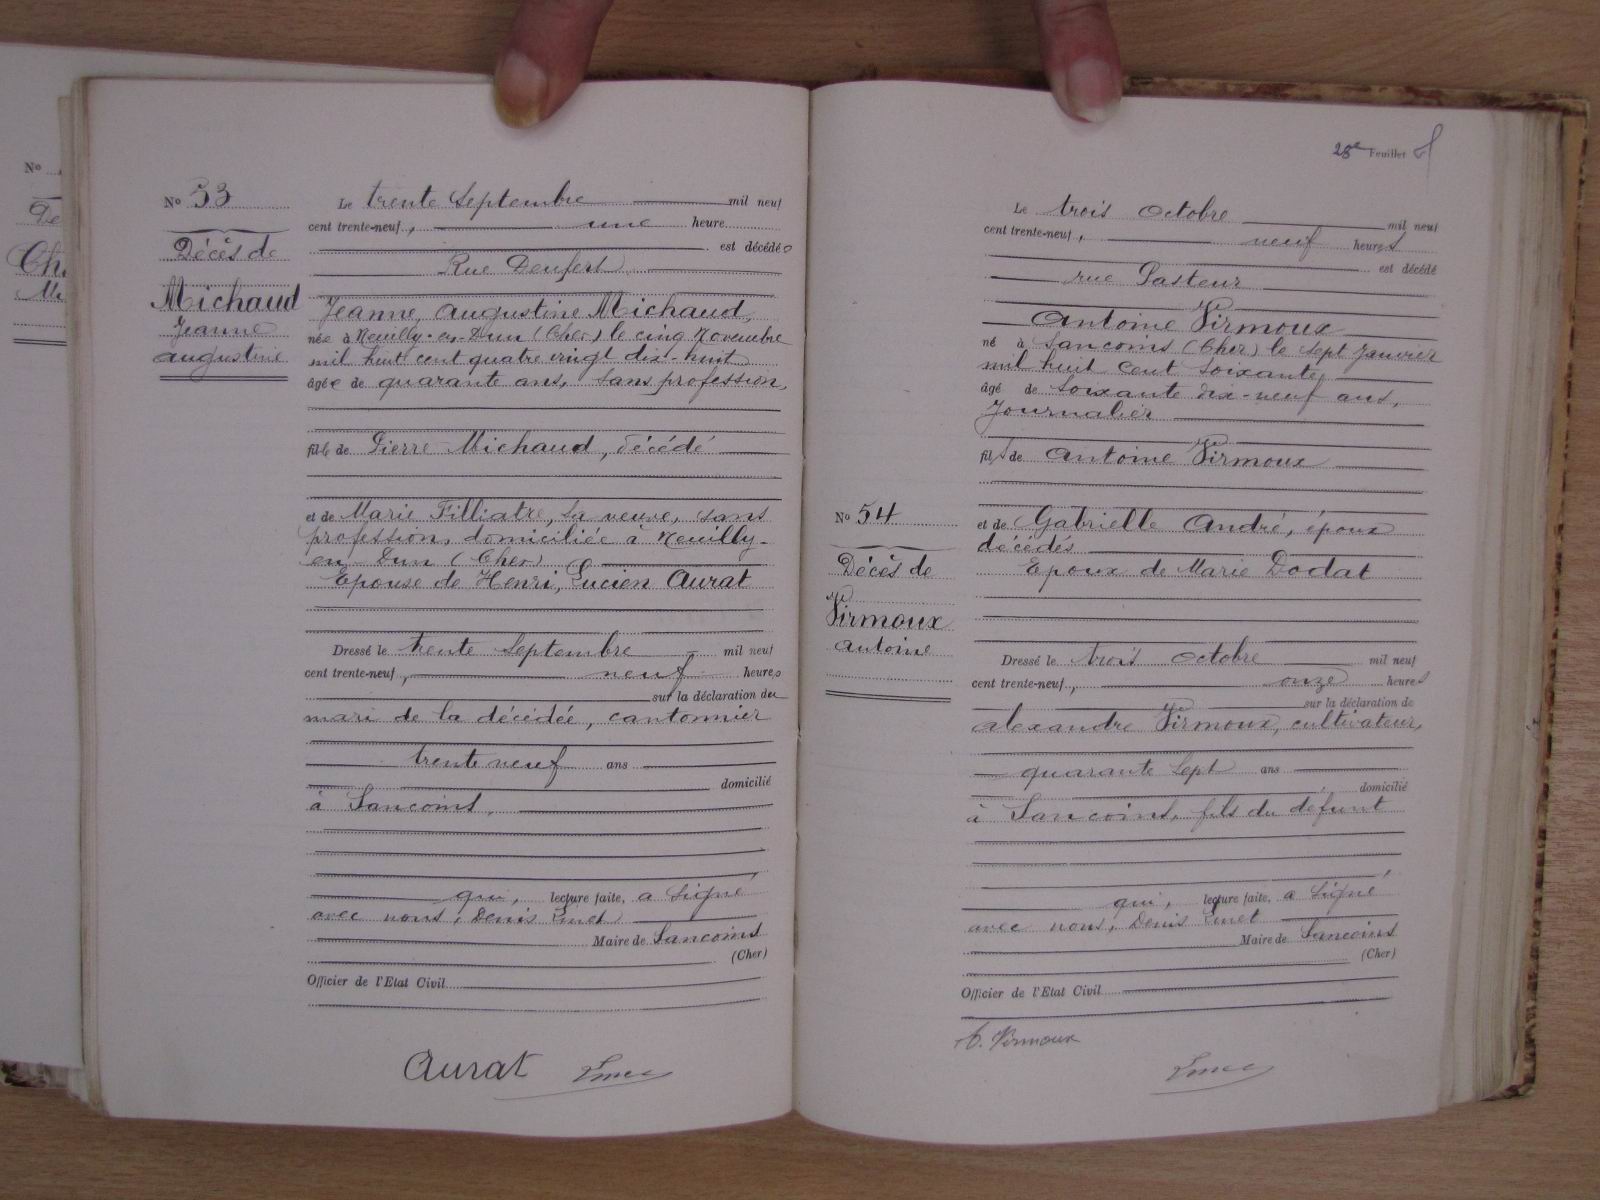 No
De
Ch
No 53
Décès de
Michaud
Jeanne
Augustine
Le trente Septembre mil neuf
cent trente-neuf, une heure
est décédée
Rue Denfert
Jeanne, Augustine Michaud,
née à Neuilly-en-Dun (Cher) le cinq Novembre
mil huit cent quatre vingt dix-huit
âgée de quarante ans, sans profession,
fille de Pierre Michaud, décédé
et de Marie Filliatre, sa veuve, sans
profession, domiciliée à Neuilly-
en-Dun (Cher)
Epouse de Henri, Lucien Aurat
Dressé le trente Septembre mil neuf
cent trente-neuf, neuf heures
sur la déclaration du
mari de la décédée, cantonnier
trente neuf ans
domicilié
à Sancoins,
qui, lecture faite, a signé
avec nous, Denis
Maire de Sancoins
(Cher)
Officier de l'Etat Civil
Aurat
28e Feuillet
No 54
Décès de
Virmoux
Antoine
Le trois Octobre mil neuf
cent trente-neuf, neuf heures
est décédé
rue Pasteur
Antoine Virmoux
né à Sancoins (Cher) le sept Janvier
mil huit cent soixante,
âgé de soixante dix-neuf ans,
Journalier
fils de Antoine Virmoux
et de Gabrielle André, époux
décédés
Epoux de Marie Dodat
Dressé le trois Octobre mil neuf
cent trente-neuf, onze heures
sur la déclaration de
Alexandre Virmoux, cultivateur,
quarante sept ans
domicilié
à Sancoins, fils du défunt
qui, lecture faite, a signé
avec nous, Denis
Maire de Sancoins
(Cher)
Officier de l'Etat Civil
Virmoux